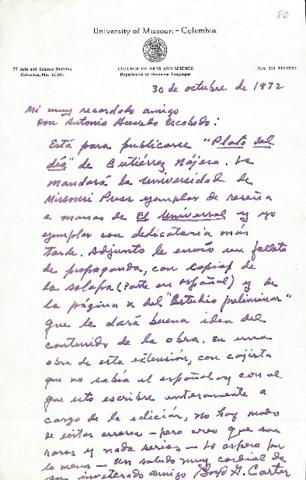 80
University of Missouri - Columbia
27 Arts and Science Building
Columbia, Mo. 65201
COLLEGE OF ARTS AND SCIENCE
Department of Romance Languages
30 de octubre de 1972
Mi muy recordado amigo
don Antonio Acevedo Escobedo:
Está para publicarse "Plato del
día" de Gutiérrez Nájera. Le
mandará la Universidad de
Missouri Press ejemplar de reseña
a manos de El Universal y yo
ejemplar con dedicatoria más
tarde. Adjunto le envío un folleto
de propaganda, con copias de
la solapa (parte en español) y de
la página x del Estudio preliminar"
que le dará buena idea del
contenido de la obra. En una
obra de esta extensión, con cajista
que no sabía el español y con el
que esto escribe enteramente a
cargo de la edición, no hay modo
de evitar errores - pero creo que son
raros y nada serios - Lo espero por
lo menos - Un saludo muy cordial de
su inveterado amigo Boyd G. Carter